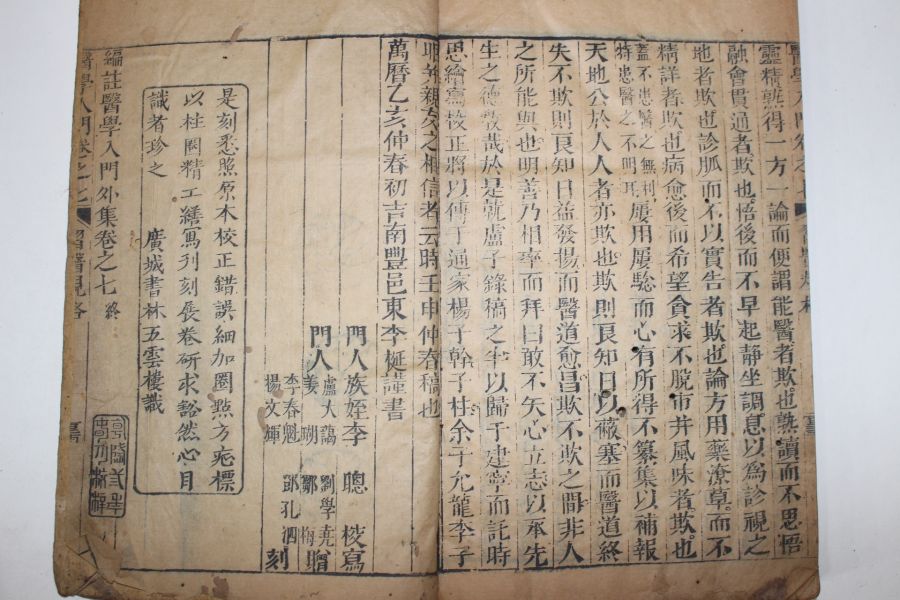 醫學入門卷之七 習醫規格
靈精熟得一方一論而便謂能醫者欺也熟讀而不思悟
融會貫通者欺也悟後而不早起靜坐調息以爲診視之
地者欺也診脈而不以實告者欺也論方用藥潦草而不
精詳者欺也病愈後而希望貪求不脫市井風味者欺也
蓋不患醫之無利
特患醫之不明耳
屢用屢驗而心有所得不纂集以補報
天地公於人人者亦欺也欺則良知日以蔽塞而醫道終
失不欺則良知日益發揚而醫道愈昌欺不欺之間非人
之所能與也明善乃相率而拜曰敢不矢心立志以承先
生之德敎哉於是就盧子錄稿之半以歸于建寧而託時
思繪寫校正將以傳于通家楊子幹子柱余子允龍李子
耶并親友之相信者云時壬申仲春稿也
萬曆乙亥仲春初吉南豐邑東李梴謹書
門人族姪李 聰 校寫
門人
盧大謁
姜 瑚
李春魁
楊文輝
劉學堯
鄒 梅
鄧孔泗
贈
刻
是刻悉照原本校正錯誤細加圈點方疵標
以柱圈精工繕寫刋刻展卷研求豁然心目
識者珍之
廣城書林五雲樓識
編註醫學入門外集卷之七 終
醫學入門卷之七 習醫規格